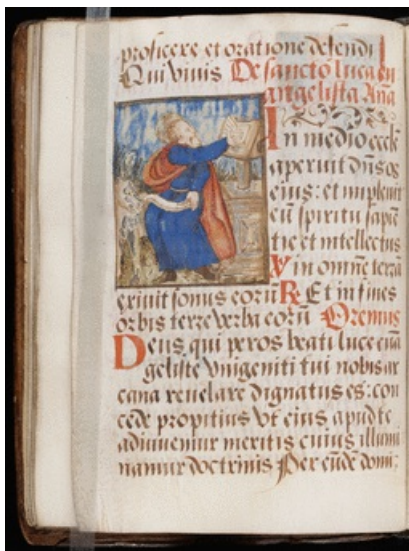 proficere et oratione defendi
Qui vivis De sancto luca eu
angelista Ana
In medio eccle
aperuit dn̄s os
eius: et impleuit
eū spiritu sapiē
tie et intellectus
V in omnē terrā
exiuit sonus eorū R Et in fines
orbis terre verba eorū Oremus
Deus qui per os beati luce euā
geliste vnigeniti tui nobis ar
cana reuelare dignatus es: con
cede propitius vt eius apud te
adiuuemur meritis cuius illumi
namur doctrinis Per eūdē domi: